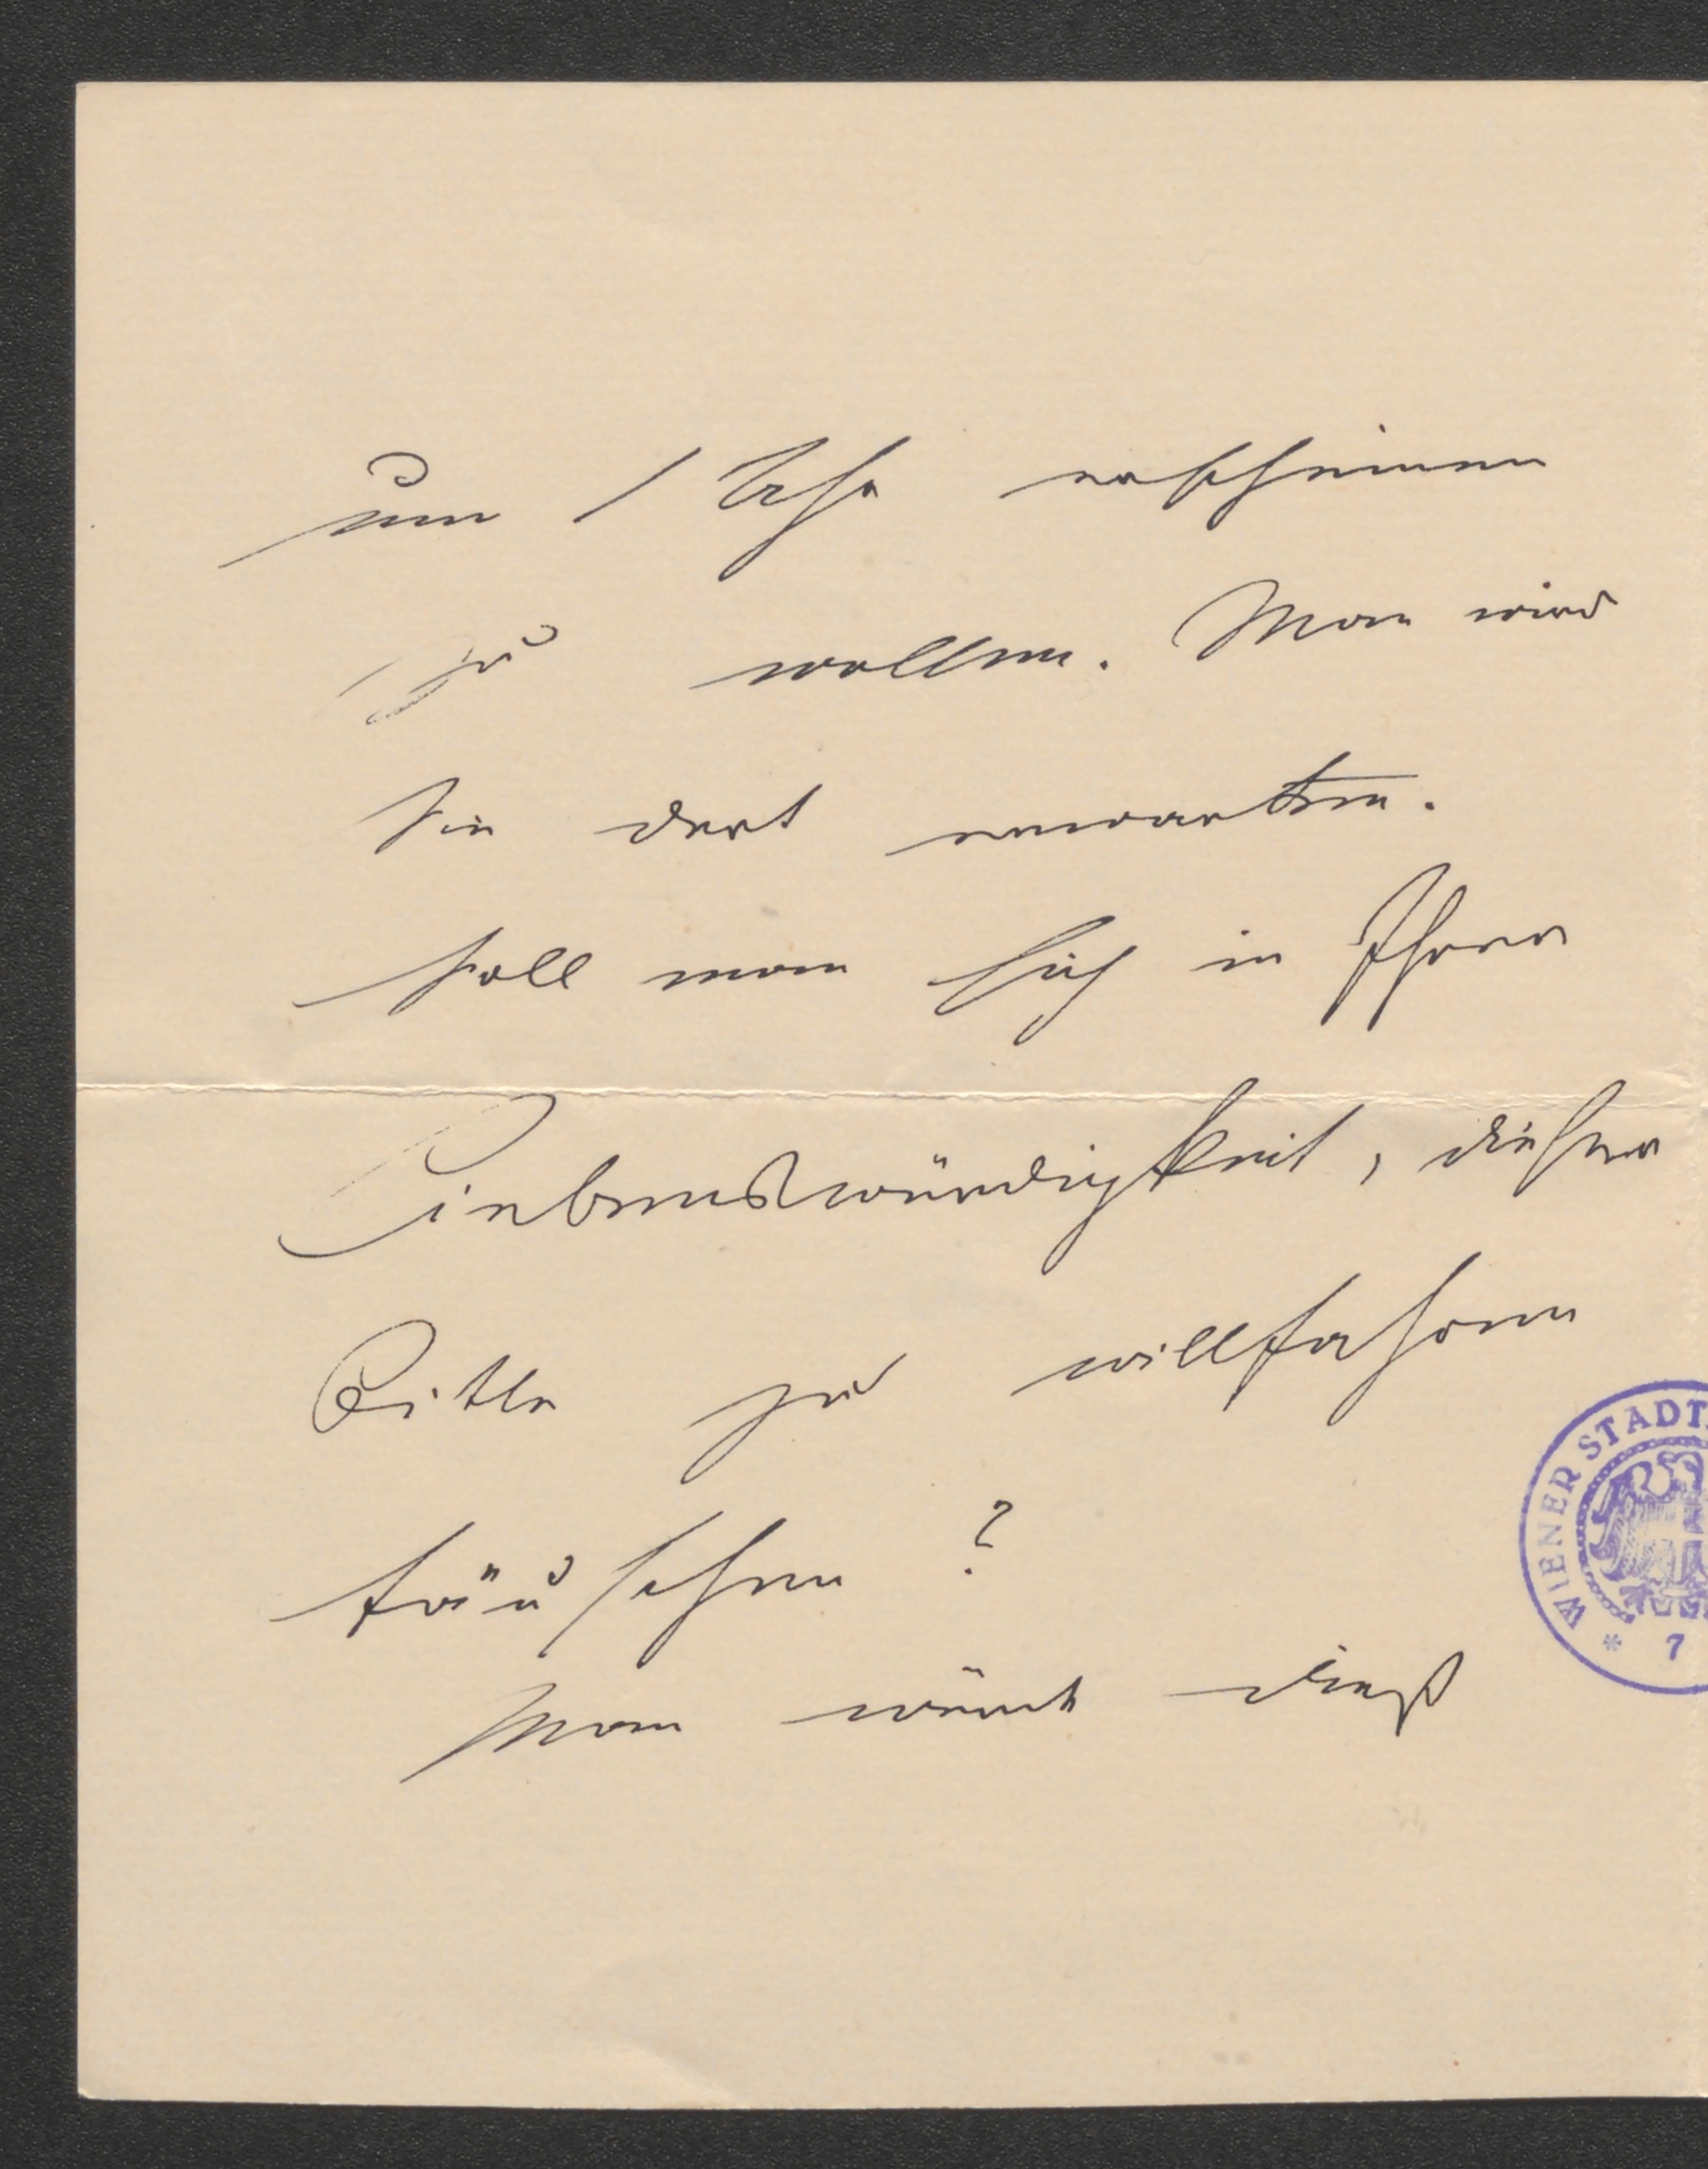 um 1 Uhr erscheinen
zu wollen. Man wird
Sie dort erwarten.
Soll man sich in Ihrer
Liebenswürdigkeit, dieser
Bitte zu willfahren
täuschen?
Man würde
WIENER STADT
* 7